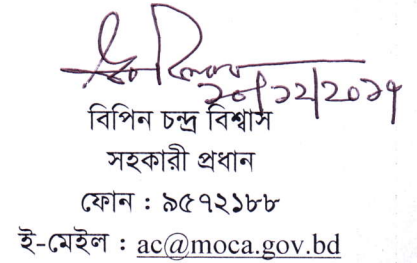 ২০/১২/২০১৭
বিপিন চন্দ্র বিশ্বাস
সহকারী প্রধান
ফোন : ৯৫৭২১৮৮
ই-মেইল : ac@moca.gov.bd